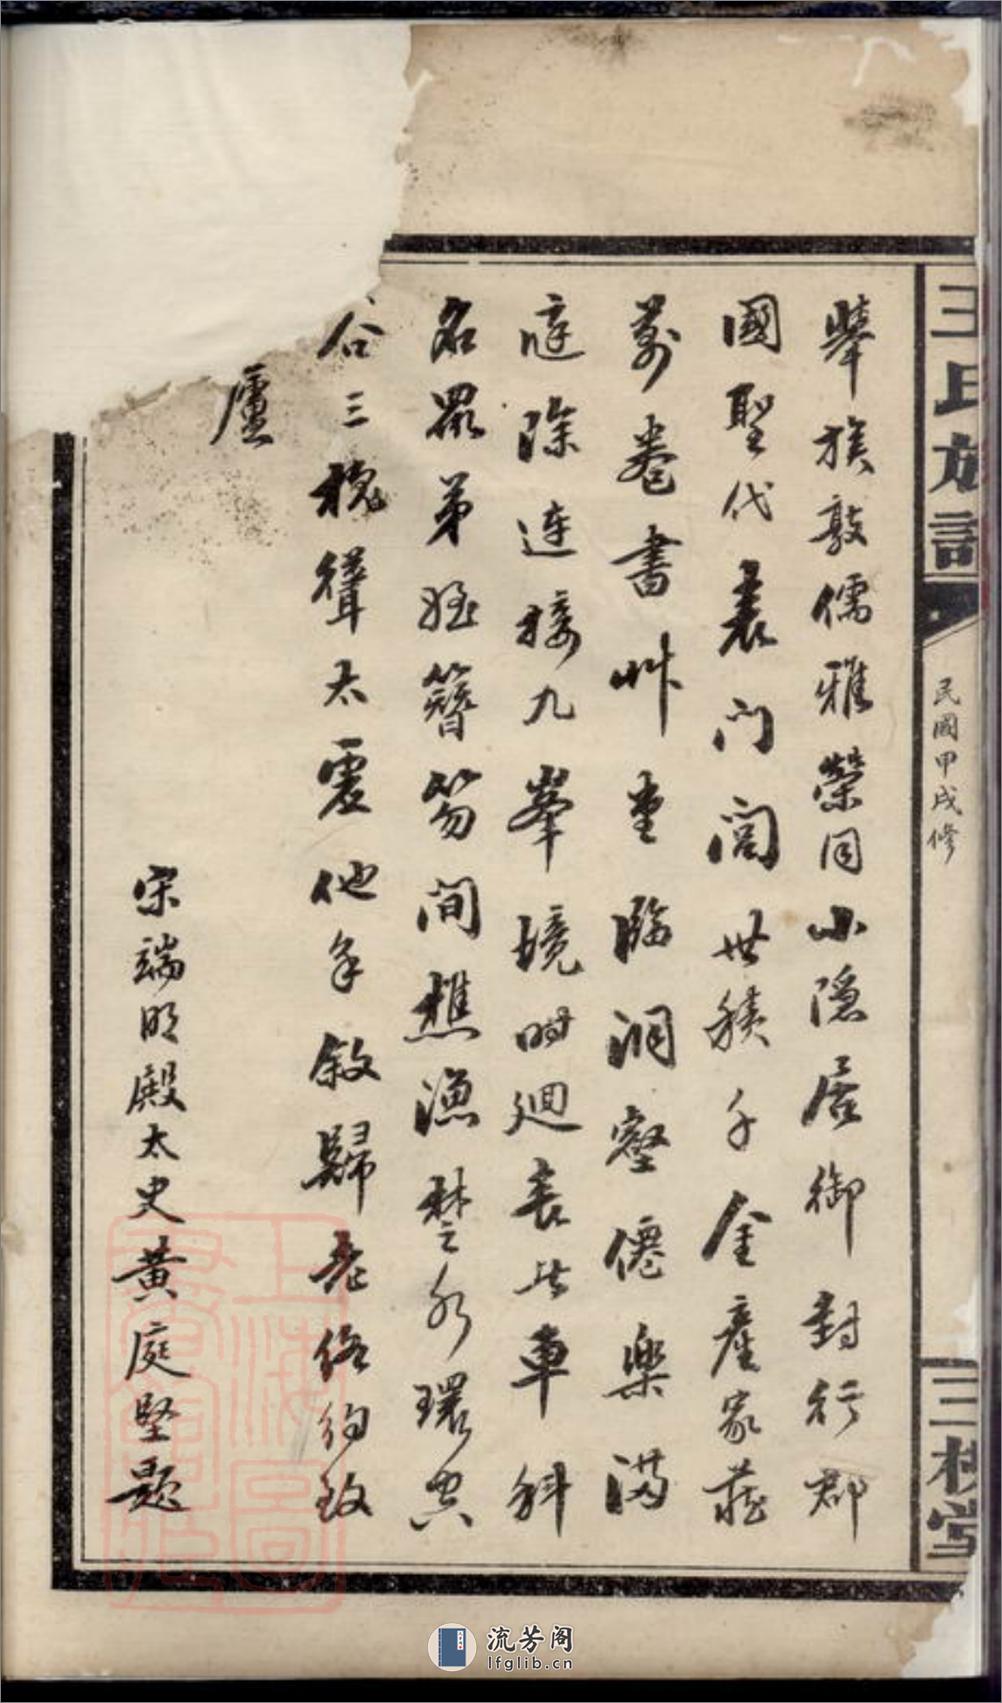 王氏族譜
民國甲戌修
三槐堂
舉族敦儒雅榮同小隱居御封行郡
國聖代表門閭世積千金產家藏
萬卷書草堂臨澗壑僊樂滿
庭除連接九峯境時迴長者車科
名眾弟姪簪笏間樵漁楚水環
谷三槐聳太虛他年敘歸老結約
廬
宋端明殿太史黃庭堅題
上海圖書館藏
流芳阁
lfglib.cn